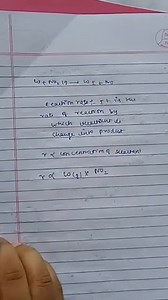 Reaction rate :- It is the
rate of reaction by
which reactant is
change into product
r ∝ concentration of reactant
r ∝ CO(g) × NO₂